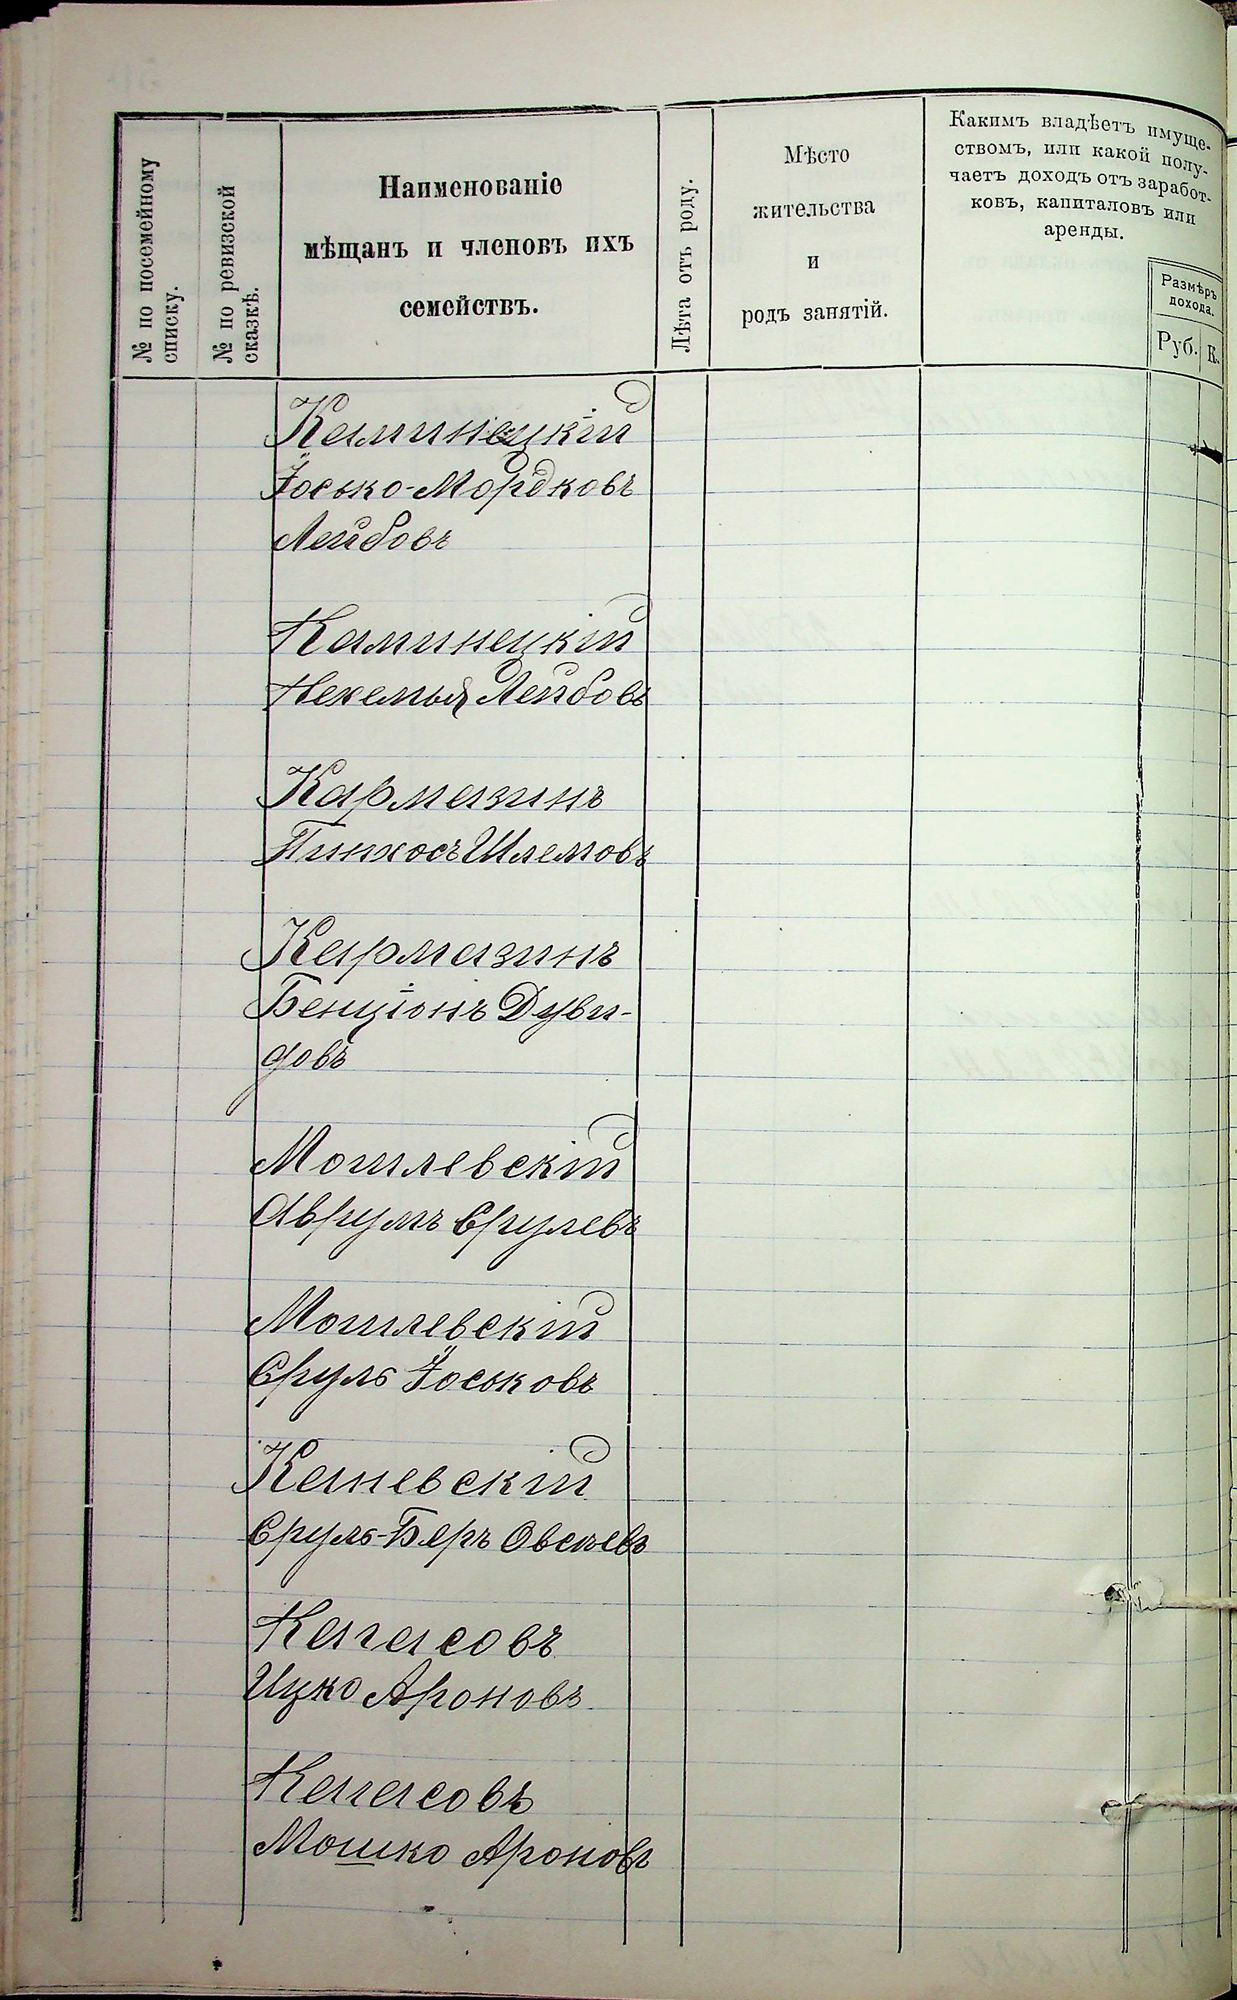 № по посемейному
списку.
№ по ревизской
сказкѣ.
Наименованіе
мѣщанъ и членовъ ихъ
семействъ.
Лѣта отъ роду.
Мѣсто
жительства
и
родъ занятій.
Какимъ владѣетъ имуще-
ствомъ, или какой полу-
чаетъ доходъ отъ заработ-
ковъ, капиталовъ или
аренды.
Размѣръ
дохода.
Руб.
К.
Каминецкій
Іосько-Мордковъ
Лейбовъ
Каминецкій
Нехемья Лейбовъ
Кармазинъ
Пинхосъ Шлемовъ
Кармазинъ
Бенціонъ Дуви-
довъ
Могилевскій
Аврумъ Срулевъ
Могилевскій
Сруль Іоськовъ
Каневскій
Сруль-Беръ Овсѣевъ
Карасовъ
Ицко Ароновъ
Карасовъ
Мошко Ароновъ